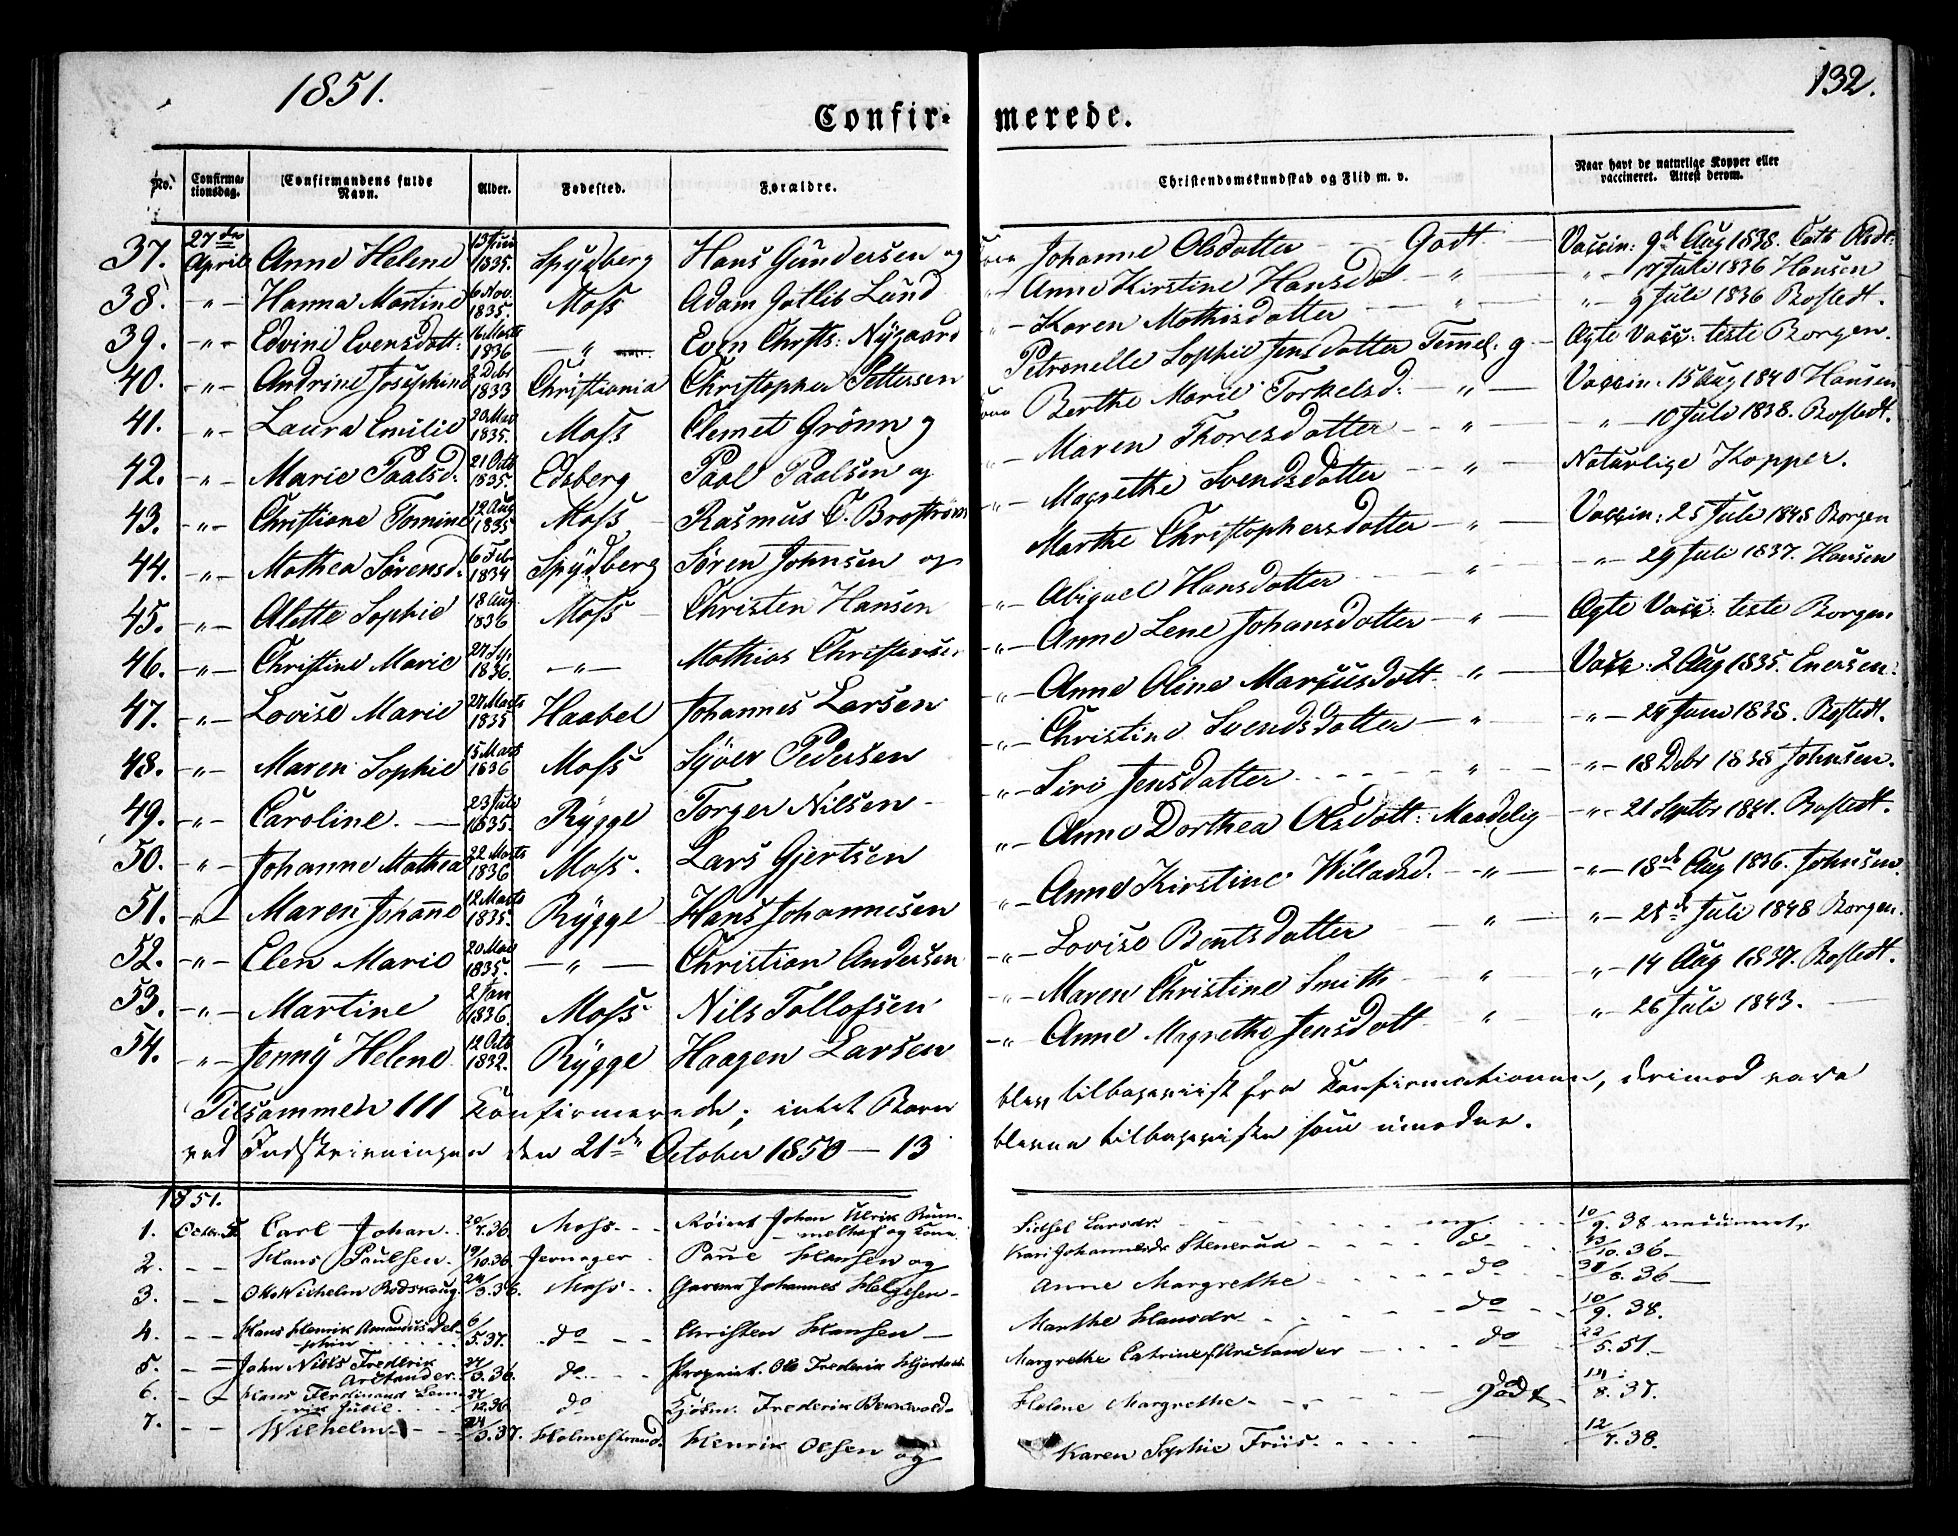 1851.
132.
Confir- merede.
No. Confirmationsdag. Confirmandens fulde Navn. Alder. Fødested. Forældre. Christendomskundskab og Flid m. v. Naar havt de naturlige Kopper eller vaccineret. Attest derom.
37. 27de April Anne Helene 1835. Spydberg Hans Gundersen og Kone Johanne Olsdatter Godt Vaccin: 9d Aug 1838. Cath Olsdt:
38. " Hanna Martine 6 Nov. 1835. Moss Adam Gotlib Lund " Anne Kirstine Hansd " " 17 Juli 1836 Hansen
39. " Edvine Evensdatt: 16 Marts 1836 " Even Chrsts: Nygaard " Karen Mathisdatter " " 9 Juli 1836 Bostedt.
40. " Andrine Josephine 8 Debr 1833 Christiania Christopher Pettersen Petronelle Sophie Jensdatter Temmel: g Ægte Vacc: teste Borgen.
41. " Laura Emilie 20 1835. Moss Clemet Grönn og Kone Berthe Marie Torkelsd: " Vaccin: 15 Aug 1840 Hansen
42. " Marie Paalsd: 21 Octb 1835. Edsberg Paal Paalsen og " Maren Thoresdatter " " 10 Juli 1838. Bostedt.
43. " Christiane Tomine 12 Aug 1835 Moss Rasmus C. Broström " Magrethe Svendsdatter " Naturlige Kopper.
44. " Mathea Sörensd. 6 Febr 1834 Spydberg Sören Johnsen og Marthe Christophersdatter " Vaccin: 25 Juli 1845 Borgen
45. " Alette Sophie 18 Aug. 1836 Moss Christen Hansen " Abigael Hansdatter " " 29 Juli 1837. Hansen
46. " Christine Marie 1836. " Mathias Christensen " Anne Lene Johansdatter " Ægte Vacc: teste Borgen.
47. " Lovise Marie 24 Marts 1835 Haabel Johannes Larsen " Anne Oline Marcusdatt. " Vacc: 2 Aug 1835. Enersen:
48. " Maren Sophie 15 Marts 1836 Moss Syver Pedersen " Christine Svendsdatter " " 24 Juni 1838. Bostedt.
49. " Caroline. 23 Juli 1835. Rygge Torger Nilsen " Siri Jensdatter " " 18 Debr 1838 Johnsen.
50. " Johanne Mathea 22 Marts 1836 Moss. Lars Gjertsen " Anne Dorthea Olsdatt: Maadelig " 21 Septbr 1841. Bostedt.
51. " Maren Johanne 12 Marts 1835. Rygge Hans Johannesen " Anne Kirstine Willadsd. " " 18d Aug 1836. Johnsen.
52. " Elen Marie 20 1835. " Christian Andersen " Lovise Bentsdatter " " 25d Juli 1848 Borgen.
53. " Martine 2 Jan 1836. Moss Nils Tollofsen " Maren Christine Smith " " 14 Aug 1837. Bostedt.
54. " Jenny Helene 12 Octb 1832. Rygge Haagen Larsen " Anne Magrethe Jensdatt " " 26 Juli 1843.
Tilsammen 111 Confirmerede; intet Barn blev tilbageviist fra Confirmationen, derimod vare
ved Indskrivningen den 21de October 1850 – 13 blevne tilbageviste som umodne.
1851.
1. Octbr 5 Carl Johan 20/7.36. Moss. Johan Ulrik Rummelhof og Kone Sidsel Larsdr. mg. 10/9. 38 vaccineret.
2. Hans Paulsen. 19/10.36 Jernager Hansen og Kari Johannesdr Stenerud do 23/10. 36
3. Otto Wilhelm Bodskaug 24/3.36. Moss Garver Johannes Helgesen Anne Margrethe do 36
4. Hans Henrik Amandus Delphin 6/5.37. do Christen Hansen Marthe Hansdr do 10/9. 38.
5. John Niels Frederik Arctander. 3.36. do Propriet. Ole Frederik Margrethe Catrine Arctander do 22/5. 51.
6. Hans Ferdinand 12.36 do Kjøbm. Frederik Helene Margrethe godt 8. 37.
7. Wilhelm 24/3.37. Holmestrand. Henrik Olsen og Karen Sophie Friis. 12/7.38.